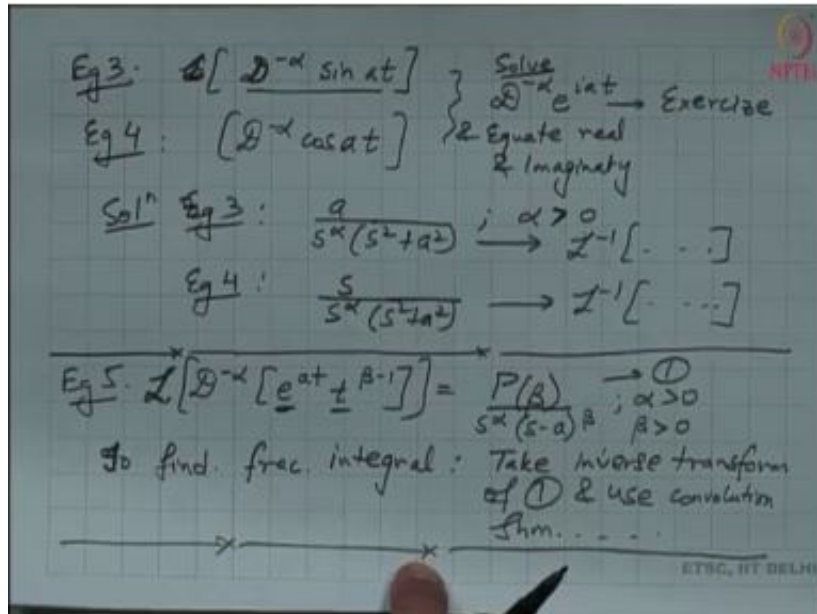 Eg 3. [ D^-α sin at ] } Solve
D^-α e^iat → Exercize
Eg 4 : [ D^-α cos at ] & Equate real
& Imaginaty
Solⁿ Eg 3 : a / s^α (s²+a²) ; α > 0 → L⁻¹[ . . . ]
Eg 4 : s / s^α (s²+a²) → L⁻¹[ . . . ]
Eg 5. L[ D^-α [ e^at t^β-1 ] ] = Γ(β) / s^α (s-a)^β ; α>0 β>0 → ①
To find. frac. integral : Take inverse transform
of ① & use convolution
Thm. . . . .
NPTEL
ETSC, IIT DELHI